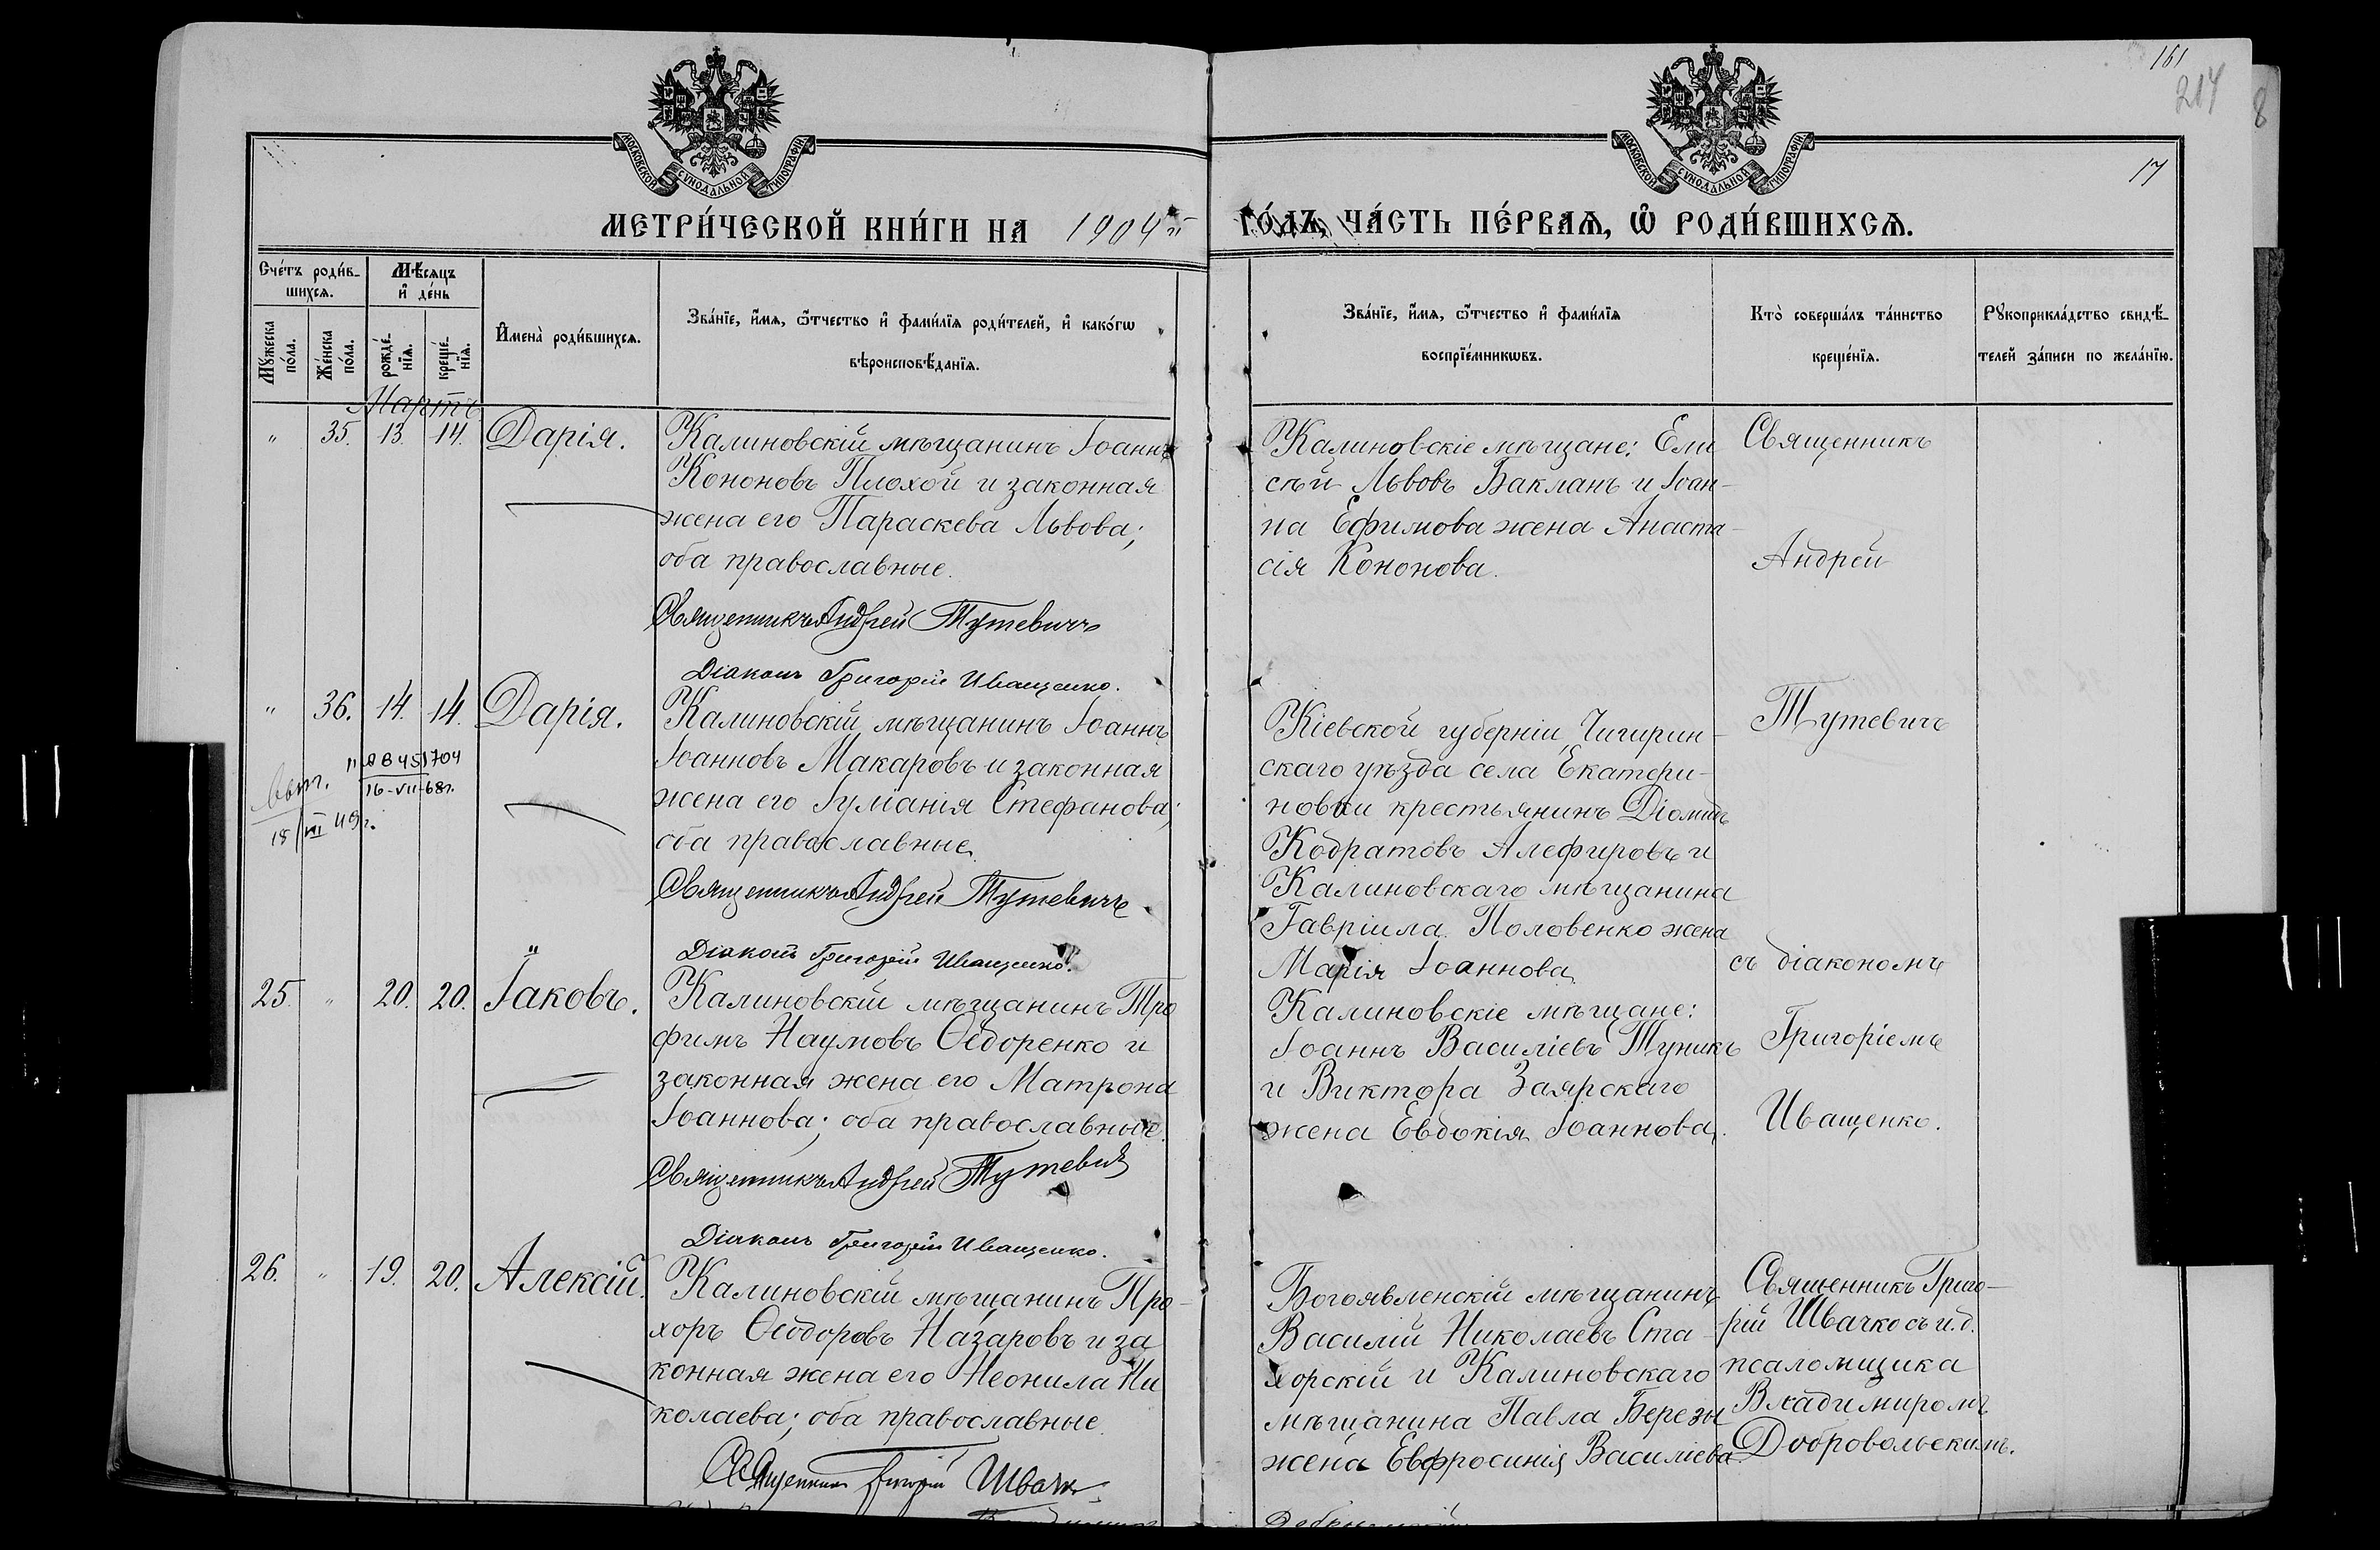 161
214
8
17
МОСКОВСКОЙ СѴНОДАЛЬНОЙ ТИПОГРАФІИ
МОСКОВСКОЙ СѴНОДАЛЬНОЙ ТИПОГРАФІИ
МЕТРИ́ЧЕСКОЙ КНИ́ГИ НА 1904й
ГО́ДЪ, ЧА́СТЬ ПЕ́РВАѦ, Ѡ҆ РОДИ́ВШИХСѦ.
Сче́тъ роди́в-
шихсѧ.
Мѣ́сѧцъ
и҆ де́нь
Мꙋ́жеска
по́ла.
Же́нска
по́ла.
рожде́-
нїѧ.
креще́-
нїѧ.
И҆мена̀ роди́вшихсѧ.
Зва́нїе, и҆́мѧ, ѻ҆́тчество и҆ фами́лїѧ роди́телей, и҆ како́гѡ
вѣроисповѣ́данїѧ.
Зва́нїе, и҆́мѧ, ѻ҆́тчество и҆ фами́лїѧ
воспрїе́мникѡвъ.
Кто̀ соверша́лъ та́инство
креще́нїѧ.
Рꙋкоприкла́дство свидѣ́-
телей за́писи по жела́нїю.
Мартъ
" 35. 13. 14. Дарія.
Калиновскій мѣщанинъ Іоаннъ
Кононовъ Плохой и законная
жена его Параскева Львова;
оба православные.
Священникъ Андрей Тутевичъ
Діаконъ Григорій Иващенко.
Калиновскіе мѣщане: Ели
сѣй Львовъ Бакланъ и Іоан-
на Ефимова жена Анаста-
сія Кононова.
Священникъ
Андрей
Тутевичъ
съ діакономъ
Григоріемъ
Иващенко.
" 36. 14. 14. Дарія.
II ЯВ 451704
16-VII-68г.
18/VII 49г.
Калиновскій мѣщанинъ Іоаннъ
Іоанновъ Макаровъ и законная
жена его Іуліанія Стефанова;
оба православные.
Священникъ Андрей Тутевичъ
Діаконъ Григорій Иващенко.
Кіевской губерніи, Чигирин-
скаго уѣзда села Екатери-
новки крестьянинъ Діомидъ
Кодратовъ Алефировъ и
Калиновскаго мѣщанина
Гавріила Половенко жена
Марія Іоаннова.
25. " 20. 20. Іаковъ.
Калиновскій мѣщанинъ Тро
фимъ Наумовъ Ѳедоренко и
законная жена его Матрона
Іоаннова; оба православные.
Священникъ Андрей Тутевичъ
Діаконъ Григорій Иващенко.
Калиновскіе мѣщане:
Іоаннъ Василіевъ Туникъ
и Виктора Заярскаго
жена Евдокія Іоаннова.
26. " 19. 20. Алексій.
Калиновскій мѣщанинъ Про-
хоръ Ѳеодоровъ Назаровъ и за
конная жена его Неонила Ни
колаева; оба православные.
Священникъ Григорій Швачко
Богоявленскій мѣщанинъ
Василій Николаевъ Ста-
хорскій и Калиновскаго
мѣщанина Павла Березы
жена Евфросинія Василіева
Священникъ Григо-
рій Швачко съ и.д.
псаломщика
Владимиромъ
Добровольскимъ.